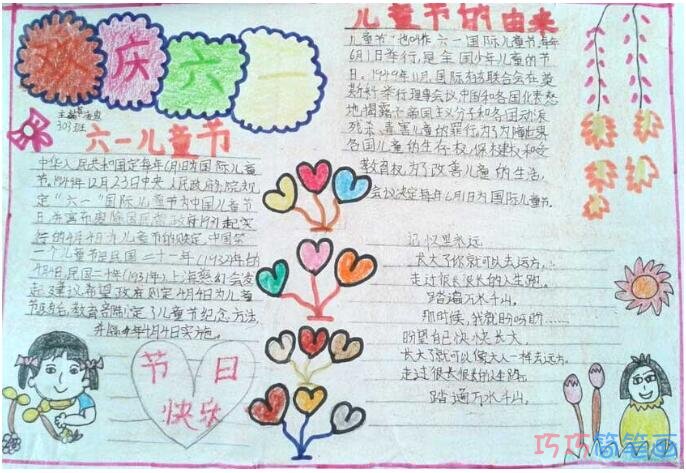 欢庆六一
主编:
303班
六一儿童节
中华人民共和国定每年6月1日为国际儿童
节,1949年12月23日中央人民政府政务院规
定“六一”国际儿童节为中国儿童节
日,并宣布废除国民党政府1931起实
行的4月4日为儿童节的规定,中国第
一个儿童节是民国二十一年(1932年)的
4月4日,民国二十年(1931年)上海慈幼会发
起建议希望政府则定4月4日为儿童
节日后,教育部制定了儿童节纪念方法,
并临年4月4日实施。
节日
快乐
儿童节的由来
儿童节”也叫作“六一国际儿童节,每年
6月1日举行,是全国少年儿童的节
日。1949年11月,国际妇联合会在莫
斯科举行理事会议,中国和各国代表愤
地揭露了帝国主义分子和各国动派
死杀、毒害儿童的罪行,为了为障世界
各国儿童的生存权,保木建权和受
教育权,为了改善儿童的生活,
会议决定每年6月1日为国际儿童节。
记忆里永远
长大了你就可以去远方,
走过很长很长的人生路,
踏遍万水千山。
那时候,我就盼呀盼......
盼望自己快快长大,
长大了就可以像大人一样去远方,
走过很长很长的路,
踏遍万水千山。
巧巧简笔画